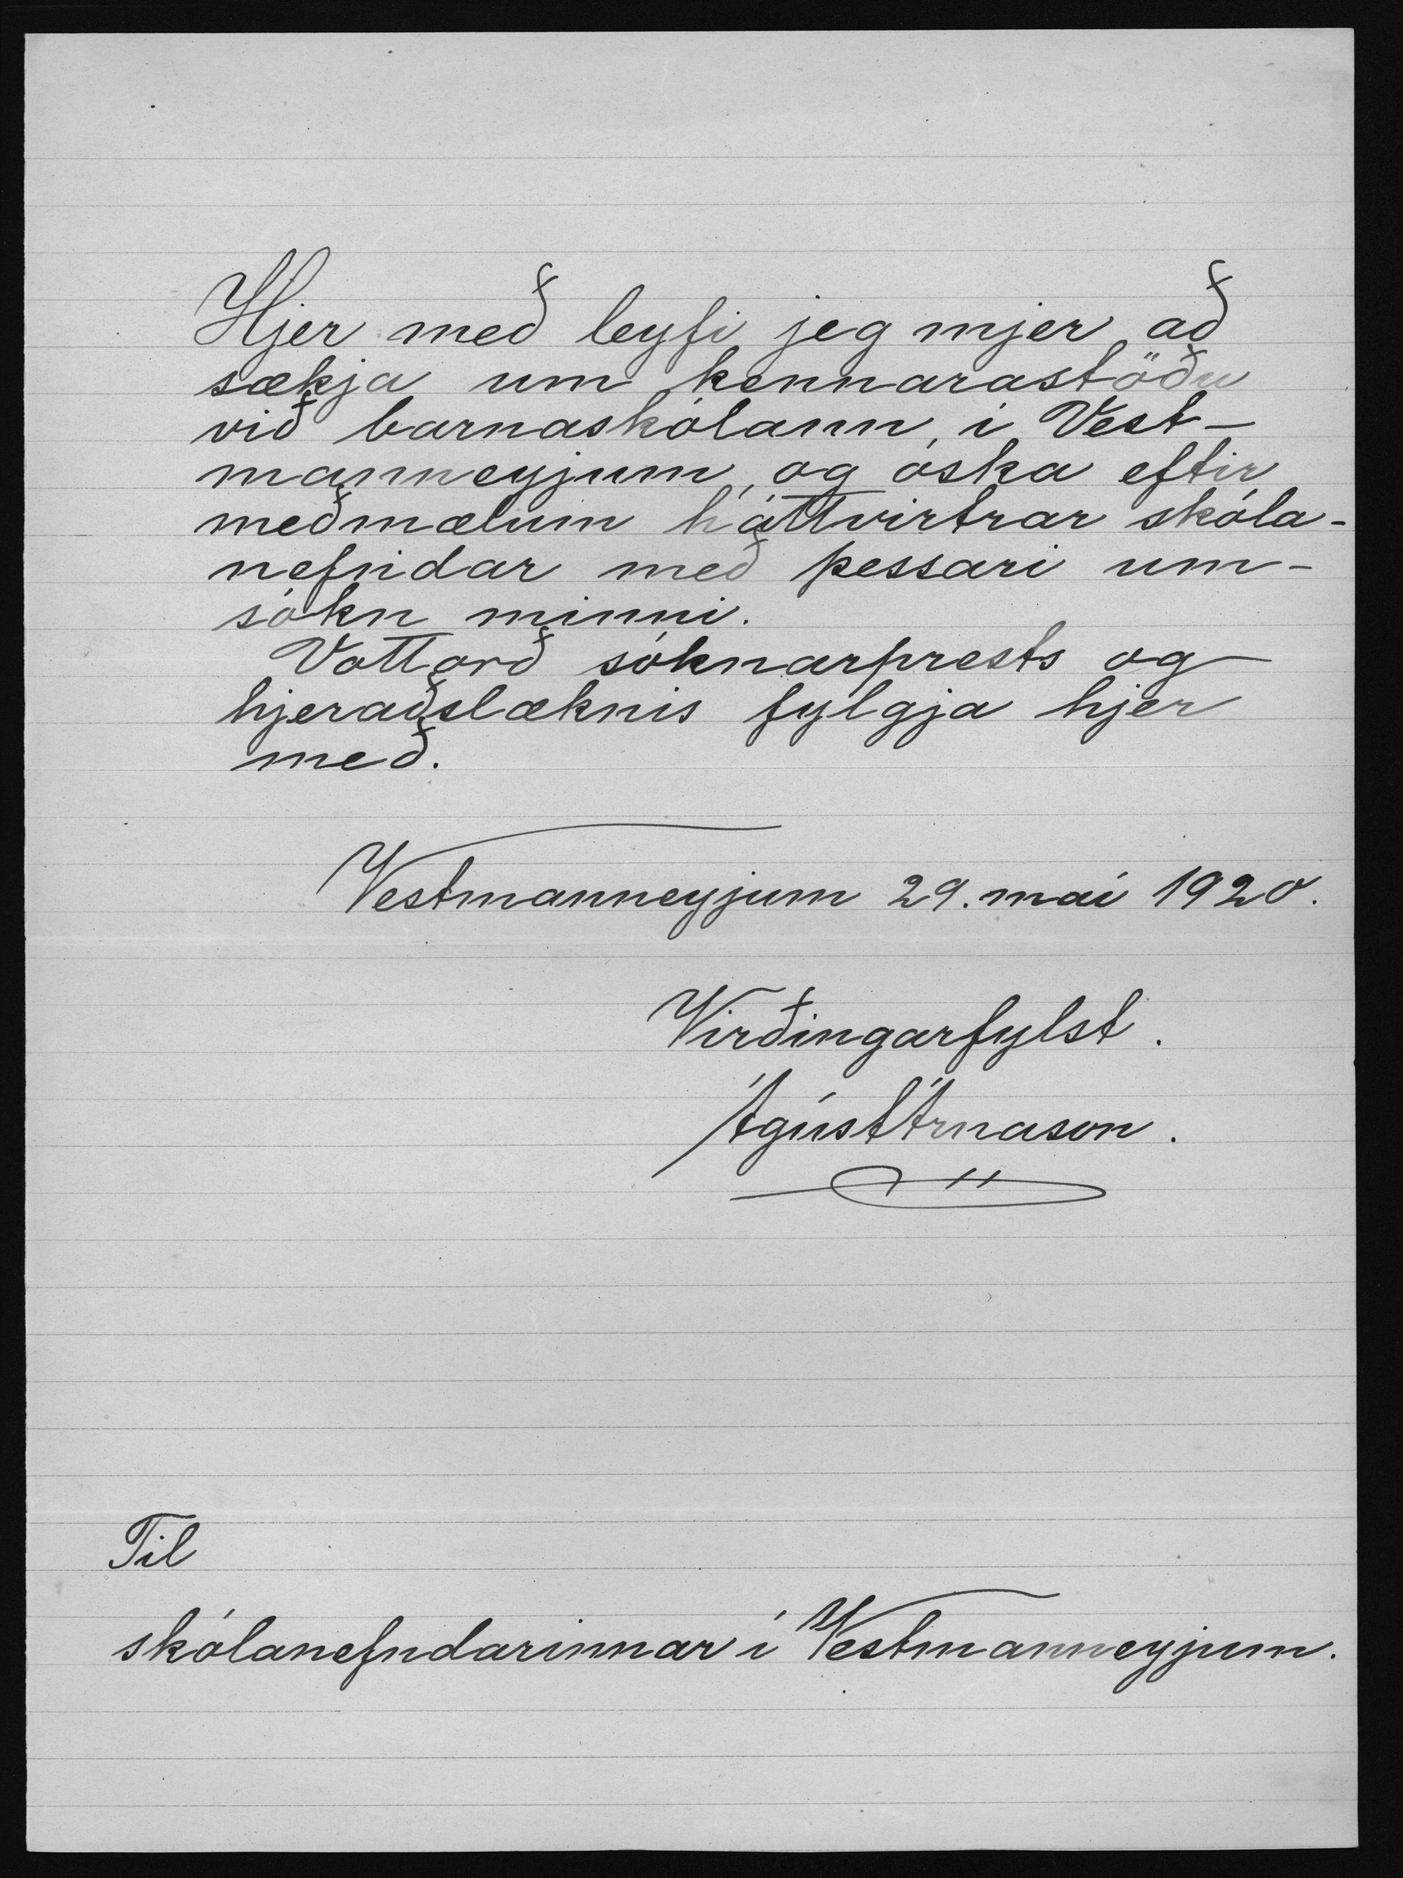 Hjer með leyfi jeg mjer að
sækja um kennarastöðu
við barnaskólann í Vest-
manneyjum, og óska eftir
meðmælum háttvirtrar skóla-
nefndar með þessari um-
sókn minni.
Vottorð sóknarprests og
hjeraðslæknis fylgja hjer
með.
Vestmanneyjum 29. maí 1920.
Virðingarfylst.
Ágúst Árnason.
Til
skólanefndarinnar í Vestmanneyjum.